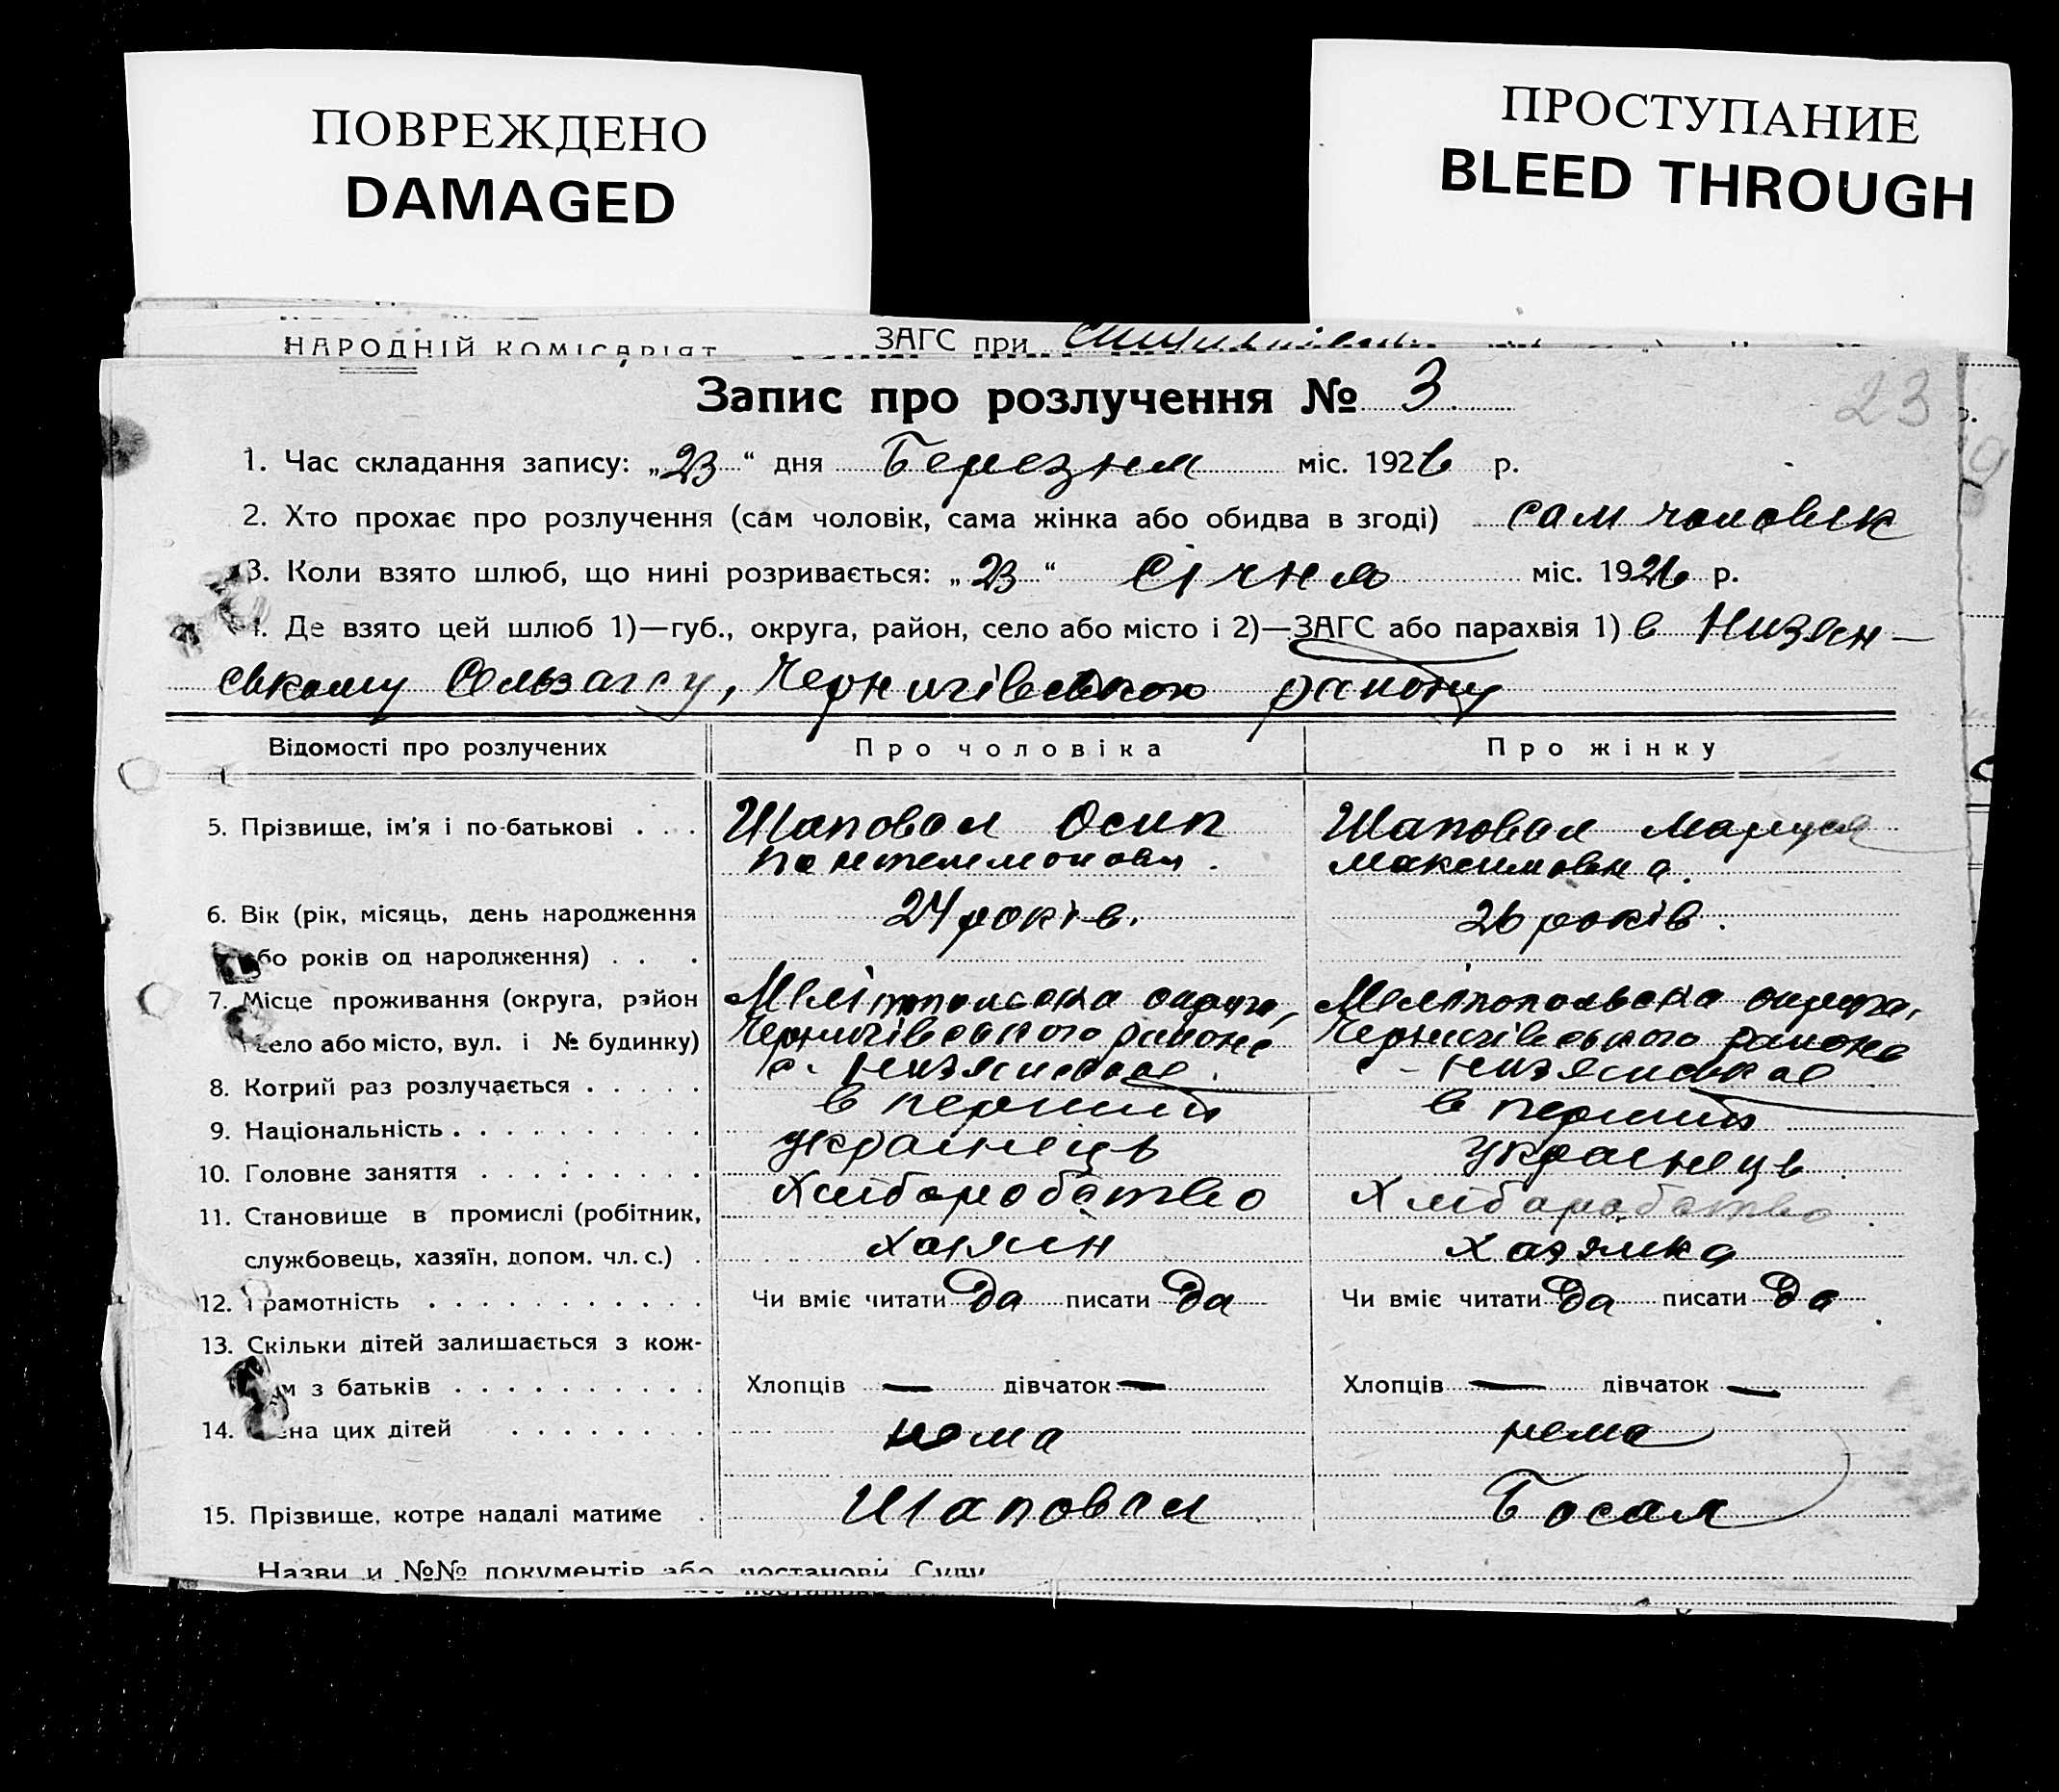 ПОВРЕЖДЕНО
DAMAGED
ПРОСТУПАНИЕ
BLEED THROUGH
НАРОДНІЙ КОМІСАРІЯТ
ЗАГС при
Запис про розлучення № 3
23
1. Час складання запису: „23“ дня Березня міс. 1926 р.
2. Хто прохає про розлучення (сам чоловік, сама жінка або обидва в згоді) сам чоловік
3. Коли взято шлюб, що нині розривається: „23“ Січня міс. 1926 р.
4. Де взято цей шлюб 1)—губ., округа, район, село або місто і 2)—ЗАГС або парахвія 1) в Низян-
ському Сельзагсу, Чернигівського району
Відомості про розлучених
Про чоловіка
Про жінку
5. Прізвище, ім'я і по-батькові . . .
Шаповал Осип
Шаповал Маруся
Пантелимонови
Максимовна.
6. Вік (рік, місяць, день народження
24 років.
26 років.
або років од народження) . . .
7. Місце проживання (округа, район
Мелітопольська округа,
Мелітопольська округа,
село або місто, вул. і № будинку)
Чернигівського району
Чернигівського району
8. Котрий раз розлучається . . . . .
в перший
в перший
9. Національність . . . . . . . . . .
українець
українець
10. Головне заняття . . . . . . . . .
Хліборобство
Хліборобство
11. Становище в промислі (робітник,
службовець, хазяїн, допом. чл. с.) .
хазяин
хазяика
12. Грамотність . . . . . . . . . . .
Чи вміє читати да писати да
Чи вміє читати да писати да
13. Скільки дітей залишається з кож-
им з батьків . . . . . . . . . .
Хлопців — дівчаток —
Хлопців — дівчаток —
14. Імена цих дітей . . . . . . . .
нема
нема
15. Прізвище, котре надалі матиме .
Шаповал
Босал
Назви и №№ документів або постанови Суду